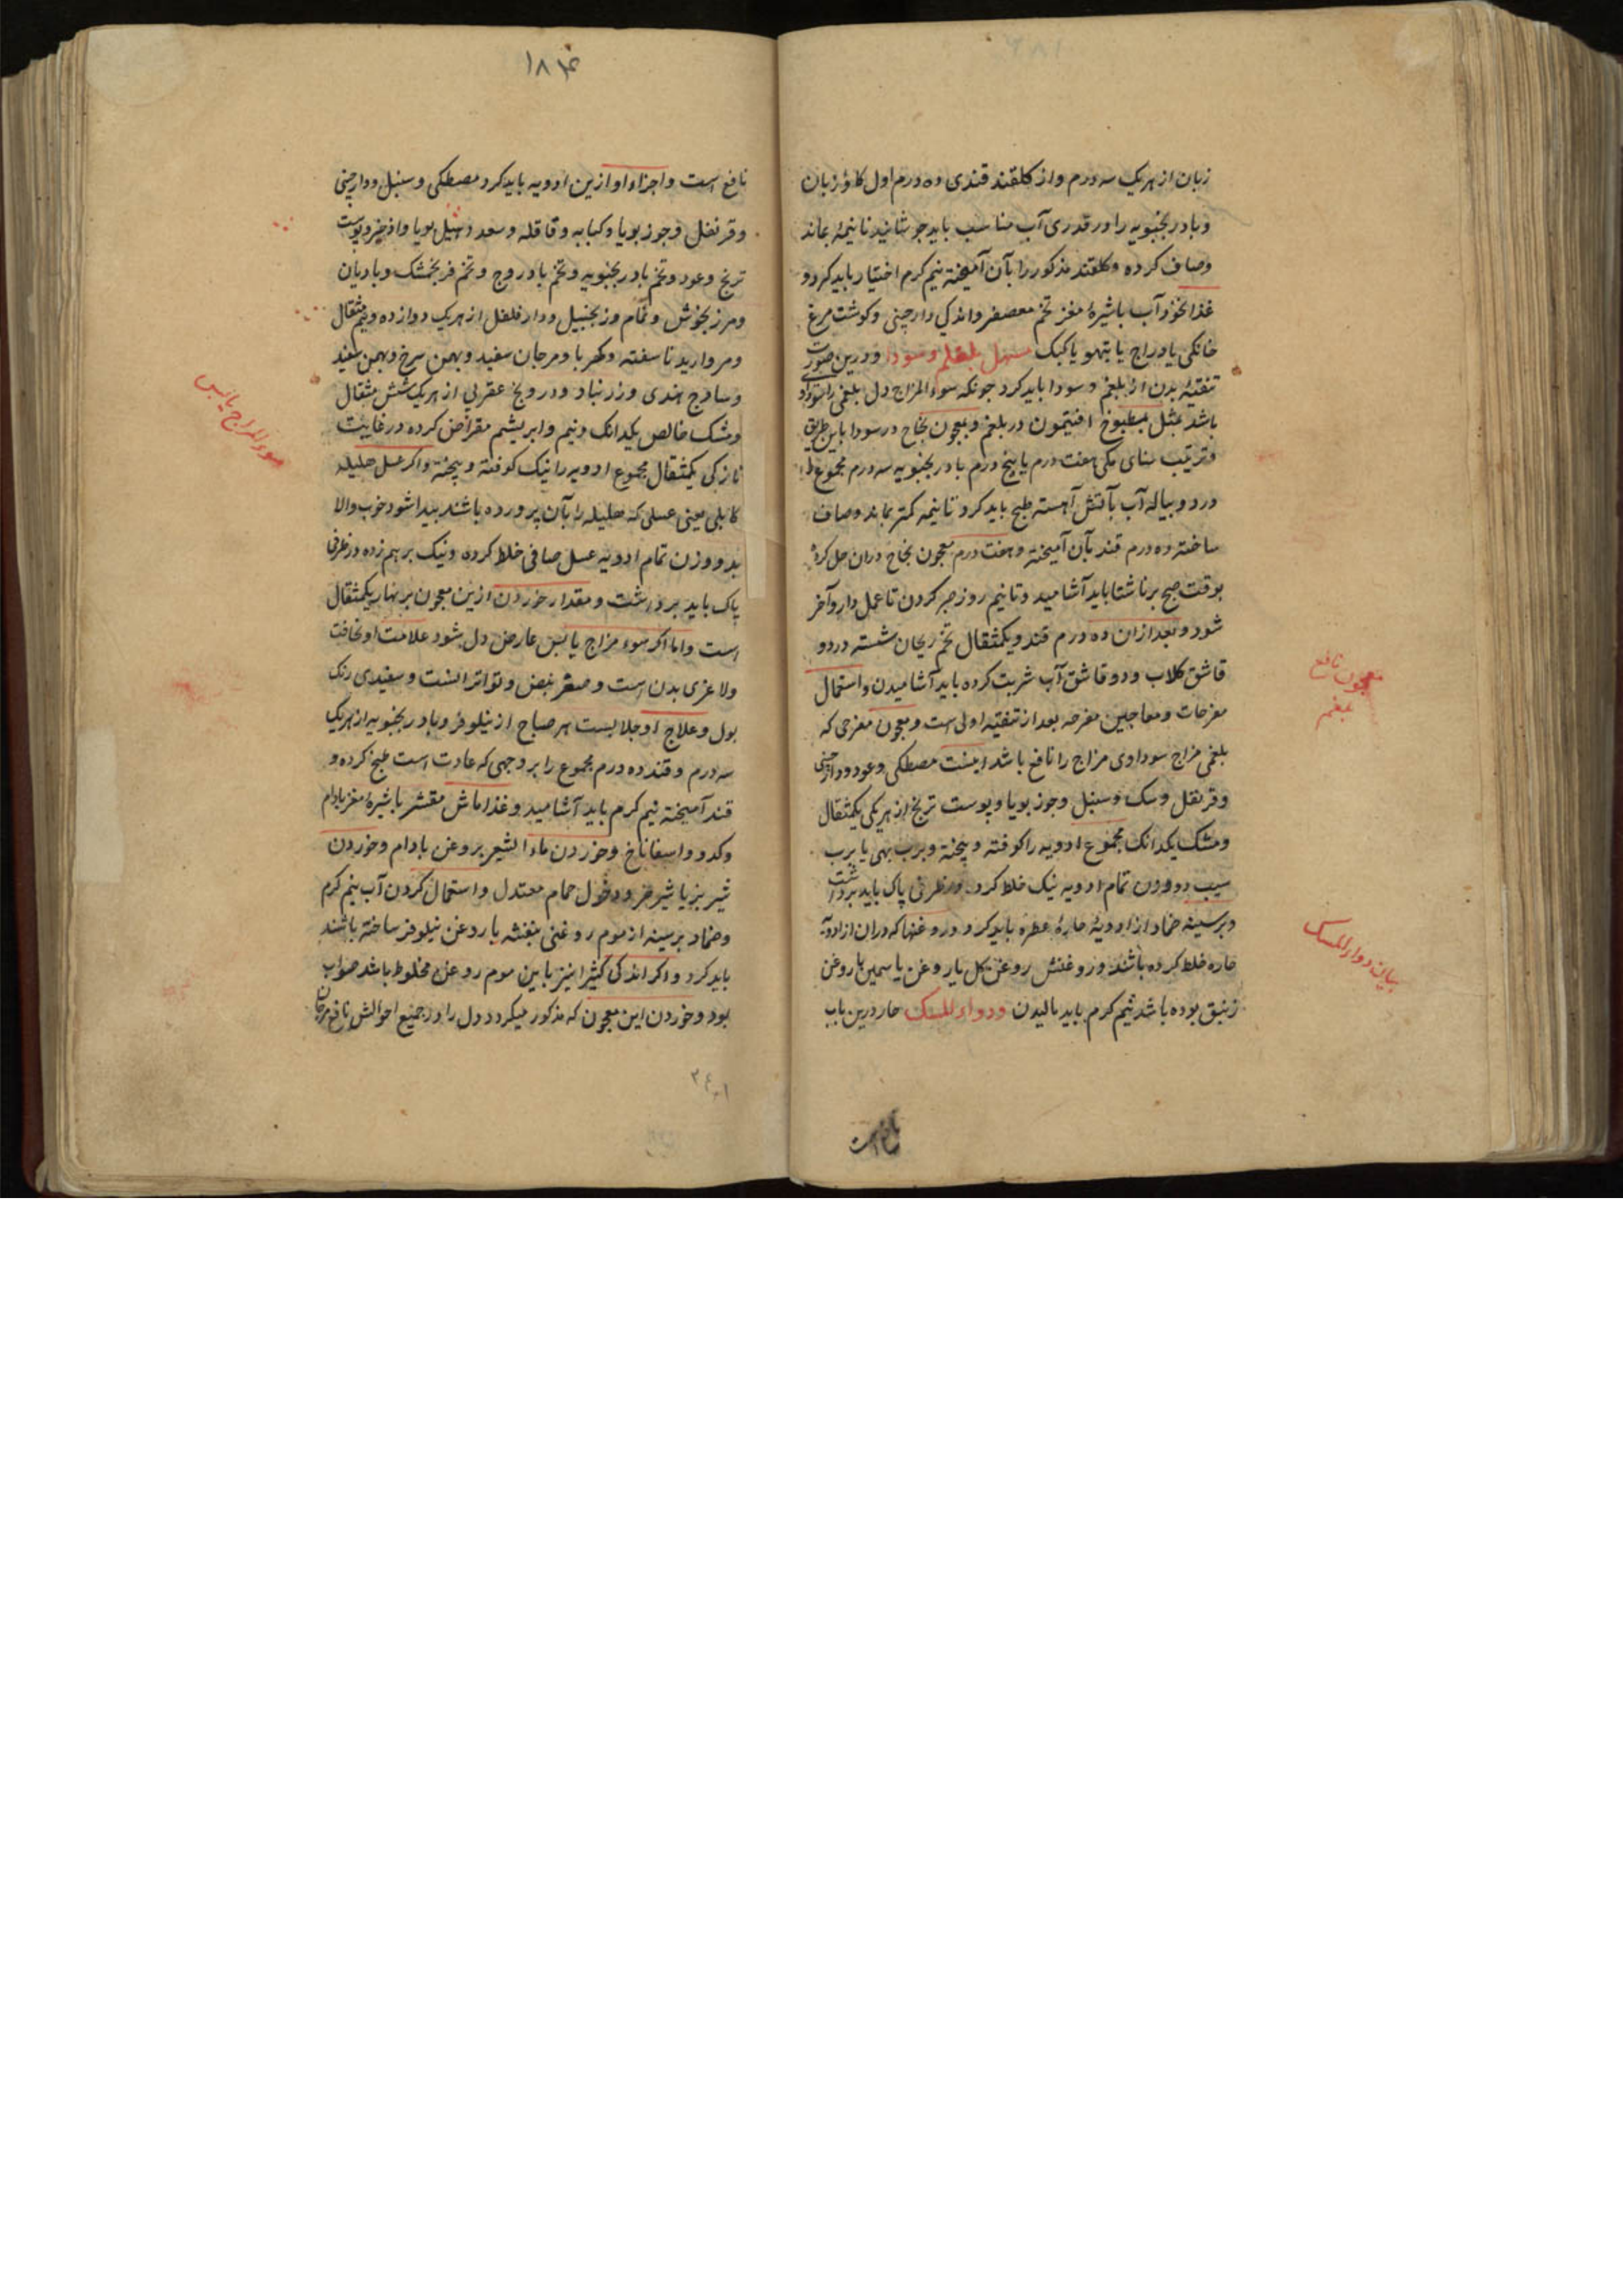 زبان از هریک سه درم و از کلقند قندی ده درم اول کاوزبان
و بادرنجبویه را در قدری آب مناسب باید جوشانید تا نیمهٔ بماند
و صاف کرده و کلقند مذکور را بآن آمیخته نیم کرم اختیار باید کرد و
غذا نخود آب باشیرهٔ مغز تخم معصفر و اندکی دارچینی و کوشت مرغ
خانکی یا دراج یا تیهو یا کبک مسهل بلغم و سودا و درین صورت
تنقیهٔ بدن از بلغم و سودا باید کرد چونکه سوءالمزاج دل بلغمی
باشد بمثل مطبوخ افتیمون در بلغم و معجون نجاح در سودا باین طریق
و ترتیب سنای مکی هفت درم یا پنج درم بادرنجبویه سه درم مجموع را
در دو پیاله آب بآتش آهسته طبخ باید کرد تا نیمه کمتر بماند و صاف
ساخته ده درم قند بآن آمیخته و هفت درم معجون نجاح دران حل کرده
بوقت صبح برناشتا باید آشامید و تا نیم روز صبر کردن تا عمل دارو آخر
شود و بعد ازان ده درم قند و یکمثقال تخم ریحان شسته در دو
قاشق کلاب و دو قاشق آب شربت کرده باید آشامیدن و استعمال
مفرحات و معاجین مفرحه بعد از تنقیه اولی است و معجون مفرحی که
بلغمی مزاج سوداوی مزاج را نافع باشد اینست مصطکی و عود و دارچینی
و قرنفل و سک و سنبل و جوز بویا و پوست ترنج از هریکی یکمثقال
و مشک یکدانک مجموع ادویه را کوفته و پیخته و برب بهی یا برب
سیب دو وزن تمام ادویه نیک خلط کرد و در ظرفی پاک باید برداشت
و بر سینه ضماد از ادویهٔ حارهٔ عطره باید کرد و روغنها که دران از ادویه
حاره خلط کرده باشند و روغنش روغن کل یا روغن یاسمین یا روغن
زنبق بوده باشد نیم کرم باید مالیدن و دواء المسک حار درین باب
معجون نافع
بلغم
بیان دواء المسک
نافع است
١٨٤
نافع است و اجزاء او ازین ادویه باید کرد مصطکی و سنبل و دارچینی
و قرنفل و جوز بویا و کبابه و قاقله و سعد و هیل بویا و اذخر و پوست
ترنج و عود و تخم بادرنجبویه و تخم بادروج و تخم فرنجمشک و بادیان
و مرزنجوش و نمام و زنجبیل و دار فلفل از هریک دوازده و نیم مثقال
و مروارید ناسفته و کهربا و مرجان سفید و بهمن سرخ و بهمن سفید
و سادج هندی و زرنباد و درونج عقربی از هریک شش مثقال
و مشک خالص یکدانک و نیم و ابریشم مقراض کرده در غایت
نازکی یکمثقال مجموع ادویه را نیک کوفته و پیخته و اکر عسل هلیله
کابلی یعنی عسلی که هلیله را بآن پرورده باشند پیدا شود خوب والا
بدو وزن تمام ادویه عسل صافی خلط کرده و نیک برهم زده در ظرفی
پاک باید برداشت و مقدار خوردن ازین معجون بر نهار یکمثقال
است و اما اکر سوء مزاج یابس عارض دل شود علامت او نحافت
و لاغری بدن است و صغر نبض و تواتر انست و سفیدی رنک
بول و علاج او جلابیست هر صباح از نیلوفر و بادرنجبویه از هریک
سه درم و قند ده درم مجموع را بر وجهی که عادت است طبخ کرده و
قند آمیخته نیم کرم باید آشامید و غذا ماش مقشر باشیرهٔ مغز بادام
و کدو و اسفاناخ و خوردن ماء الشعیر بروغن بادام و خوردن
شیر بز یا شیر خر و دخول حمام معتدل و استعمال کردن آب نیم کرم
و ضماد بر سینه از موم روغنی بنفشه یا روغن نیلوفر ساخته باشند
باید کرد و اکر اندکی کثیرا نیز باین موم روغن مخلوط باشد صواب
بود و خوردن این معجون که مذکور میکردد دل را در جمیع احوالش نافع
سوء المزاج یابس